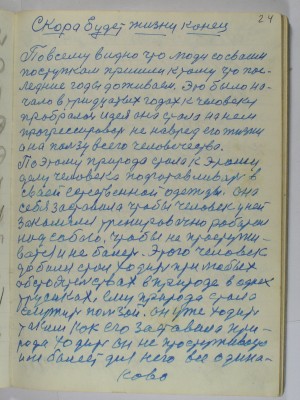 24
Скора будет жизни конец
По всему видно что люди со своим
поступкам пришли к тому что пос-
ледние годы доживаем. Это было на-
чало в тридцатих годах к человеку
пробралась идея она стала на нем
прогрессировать не на вред его жизни
а на пользу всего человечества.
Поэтому природа стала к этому
делу человека подготавливать в
своей естественной одежды. Она
себя заставила чтобы человек у ней
закалялся тренировочно работал
над собою, чтобы не простужи-
вался и не болел. Этого человек
добился стал ходить при любых
обстоятельствах в природе в одних
трусиках, ему природа стала
служить пользой. он уже ходит
таким как его заставила при-
рода ходить он не простуживается
и не болеет для него все одина-
ково